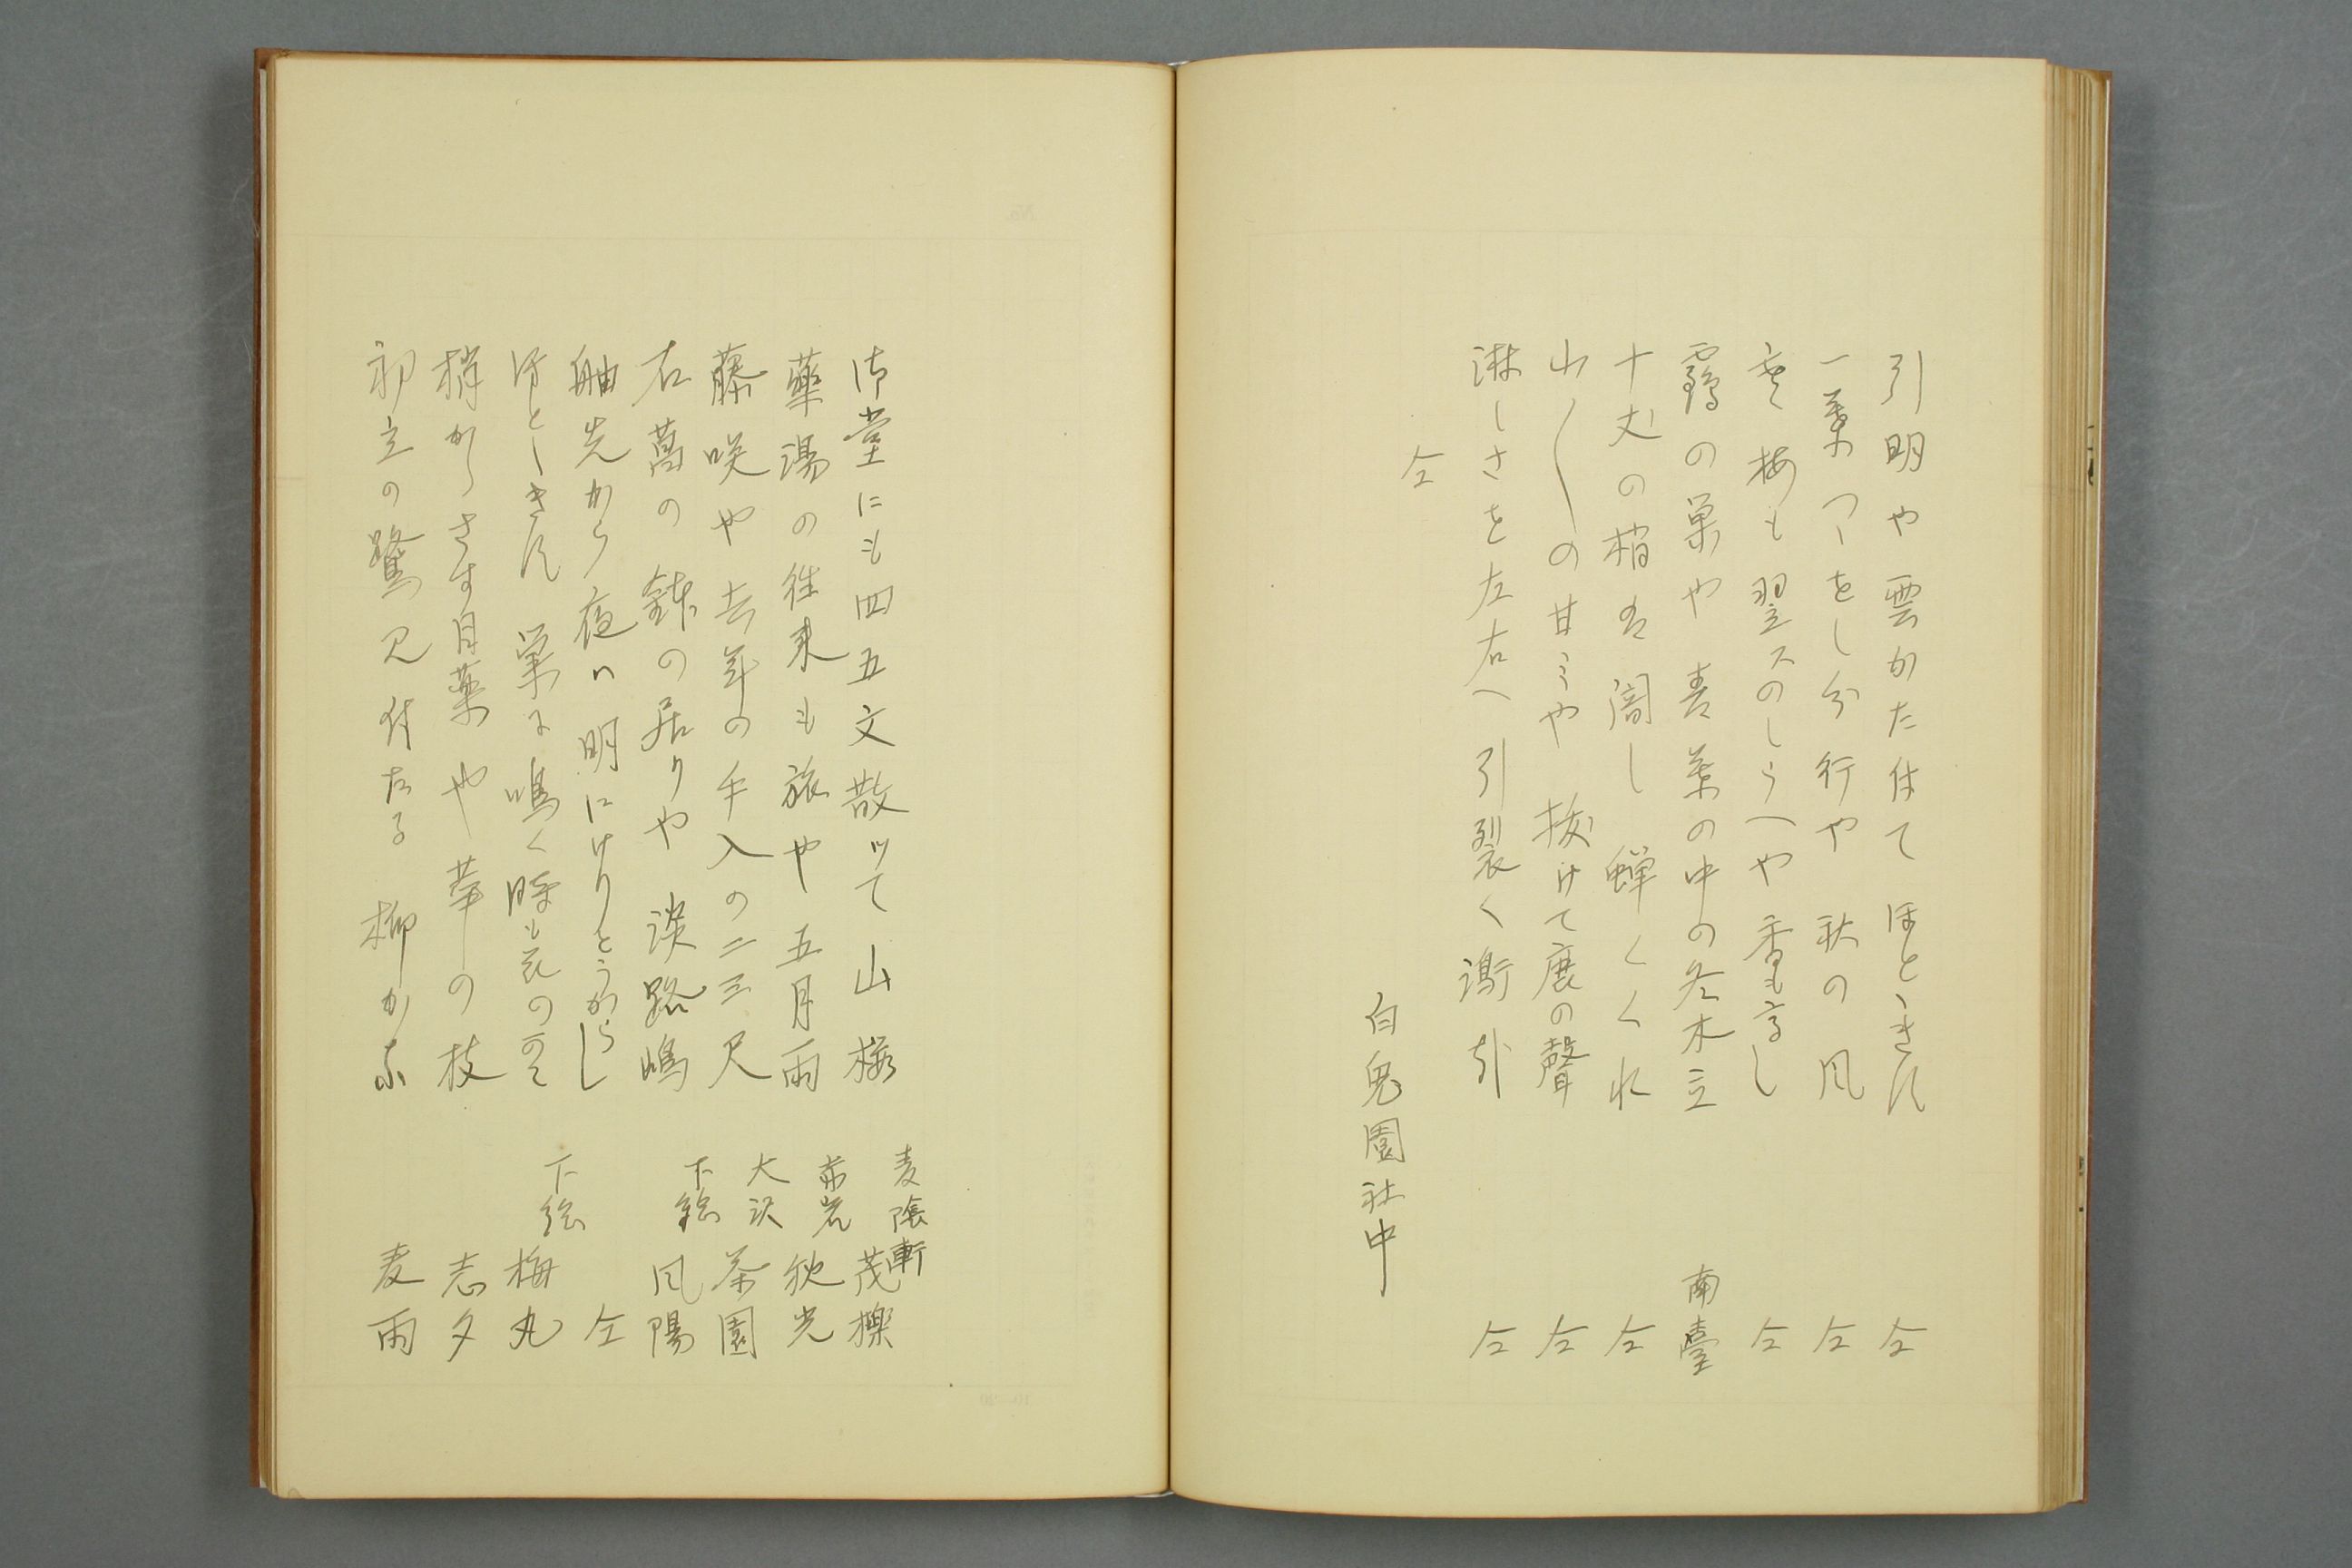 引明や雲かた付てほとゝきす 仝
一葉つゝをし分行や秋の風 仝
老梅も翌スのしらへや香も高し 仝
鶴の巣や青葉の中の冬木立 南臺
十丈の梢も闇し蝉しくれ 仝
山〳〵の甘ミや抜けて鹿の聲 仝
淋しさを左右へ引裂く瀬引 仝
仝
白兎園社中
御堂にも四五文散ッて山桜 麦陰軒 茂樂
藥湯の往来も旅や五月雨 秋光
藤咲や去年の手入の二三尺 大沢 茶園
石菖の鉢の居りや淡路嶋 下絵 風陽
舳先から夜ハ明にけりとうからし 仝
ほとゝきす巣に鳴く時も花の空 下絵 梅丸
梢からさす目薬や華の枝 志夕
初立の鷺見付たる柳かな 麦雨